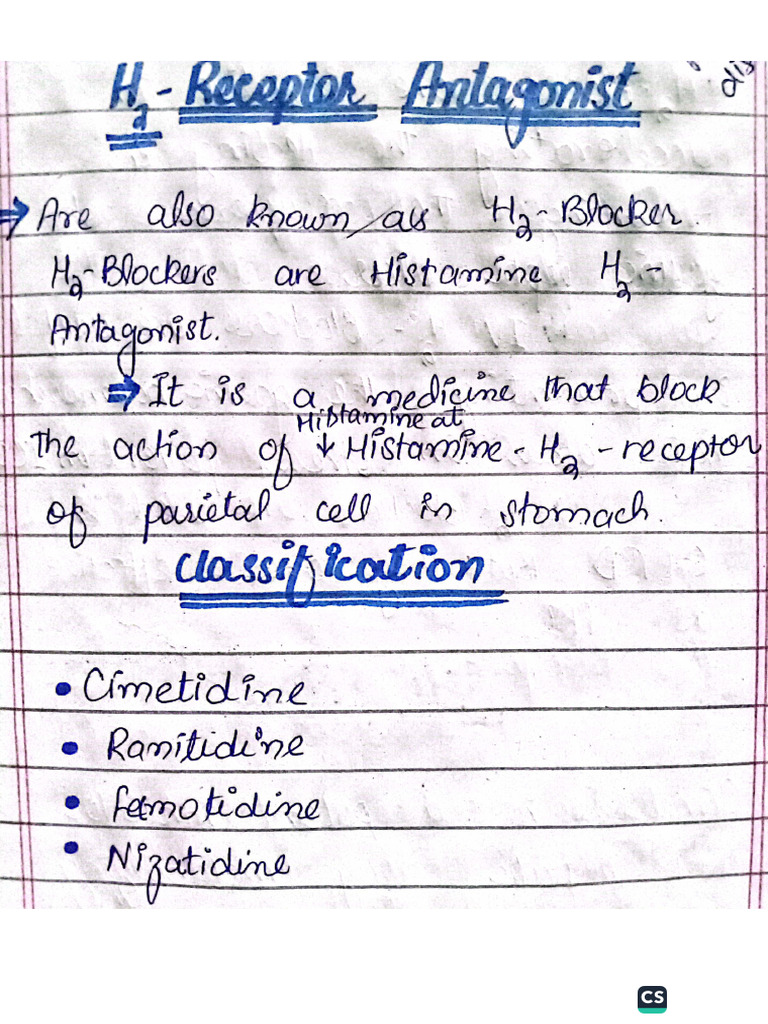 H₂ - Receptor Antagonist
⇒ Are also known as H₂-Blocker.
H₂-Blockers are Histamine H₂-
Antagonist.
⇒ It is a medicine that block
Histamine at
The action of ↓ Histamine - H₂ - receptor
of parietal cell in stomach.
Classification
• Cimetidine
• Ranitidine
• famotidine
• Nizatidine
CS